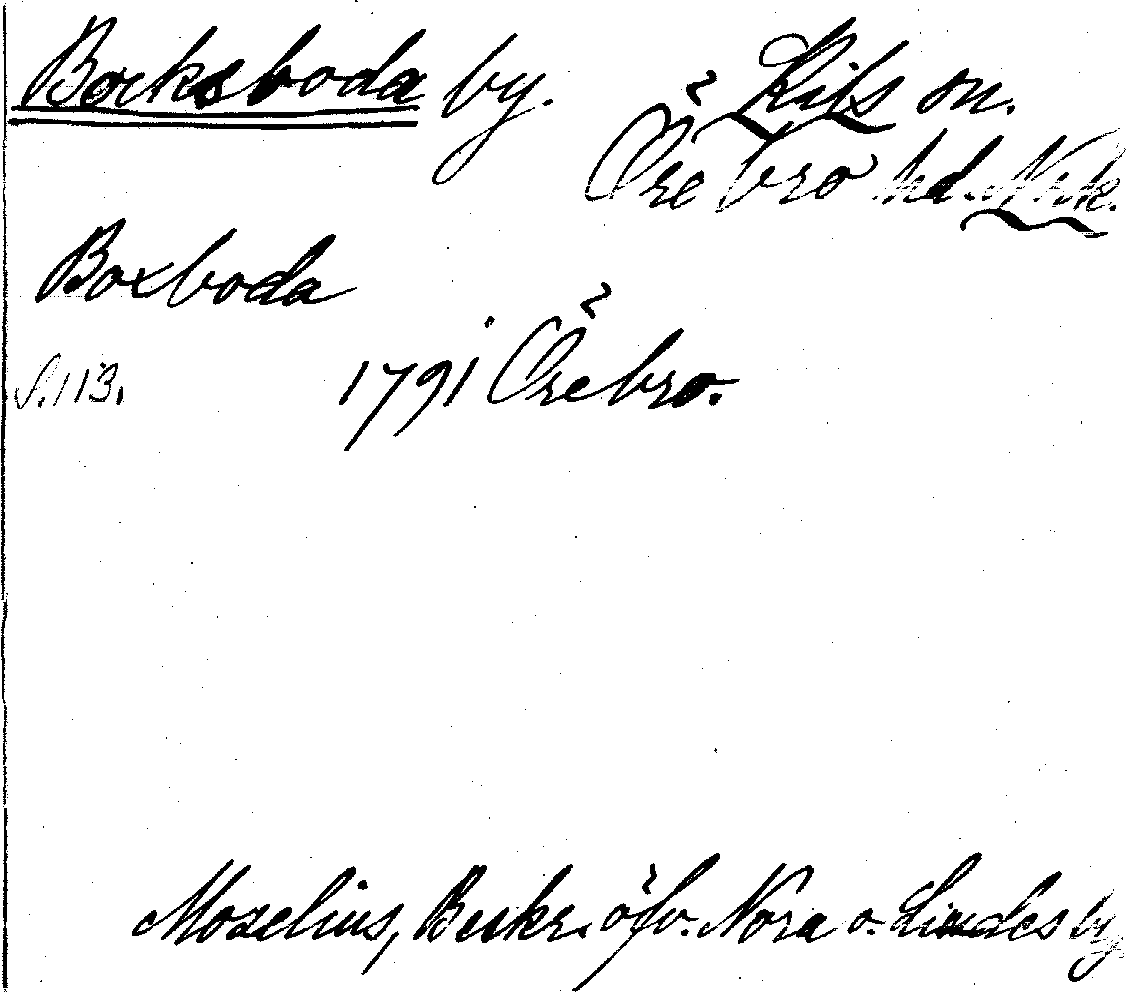 Bocksboda by. Kils sn.
Örebro hd. Nrk.
Boxboda
S. 113. 1791 Örebro.
Moselius, Beskr. öfv. Nora o. Lindes by